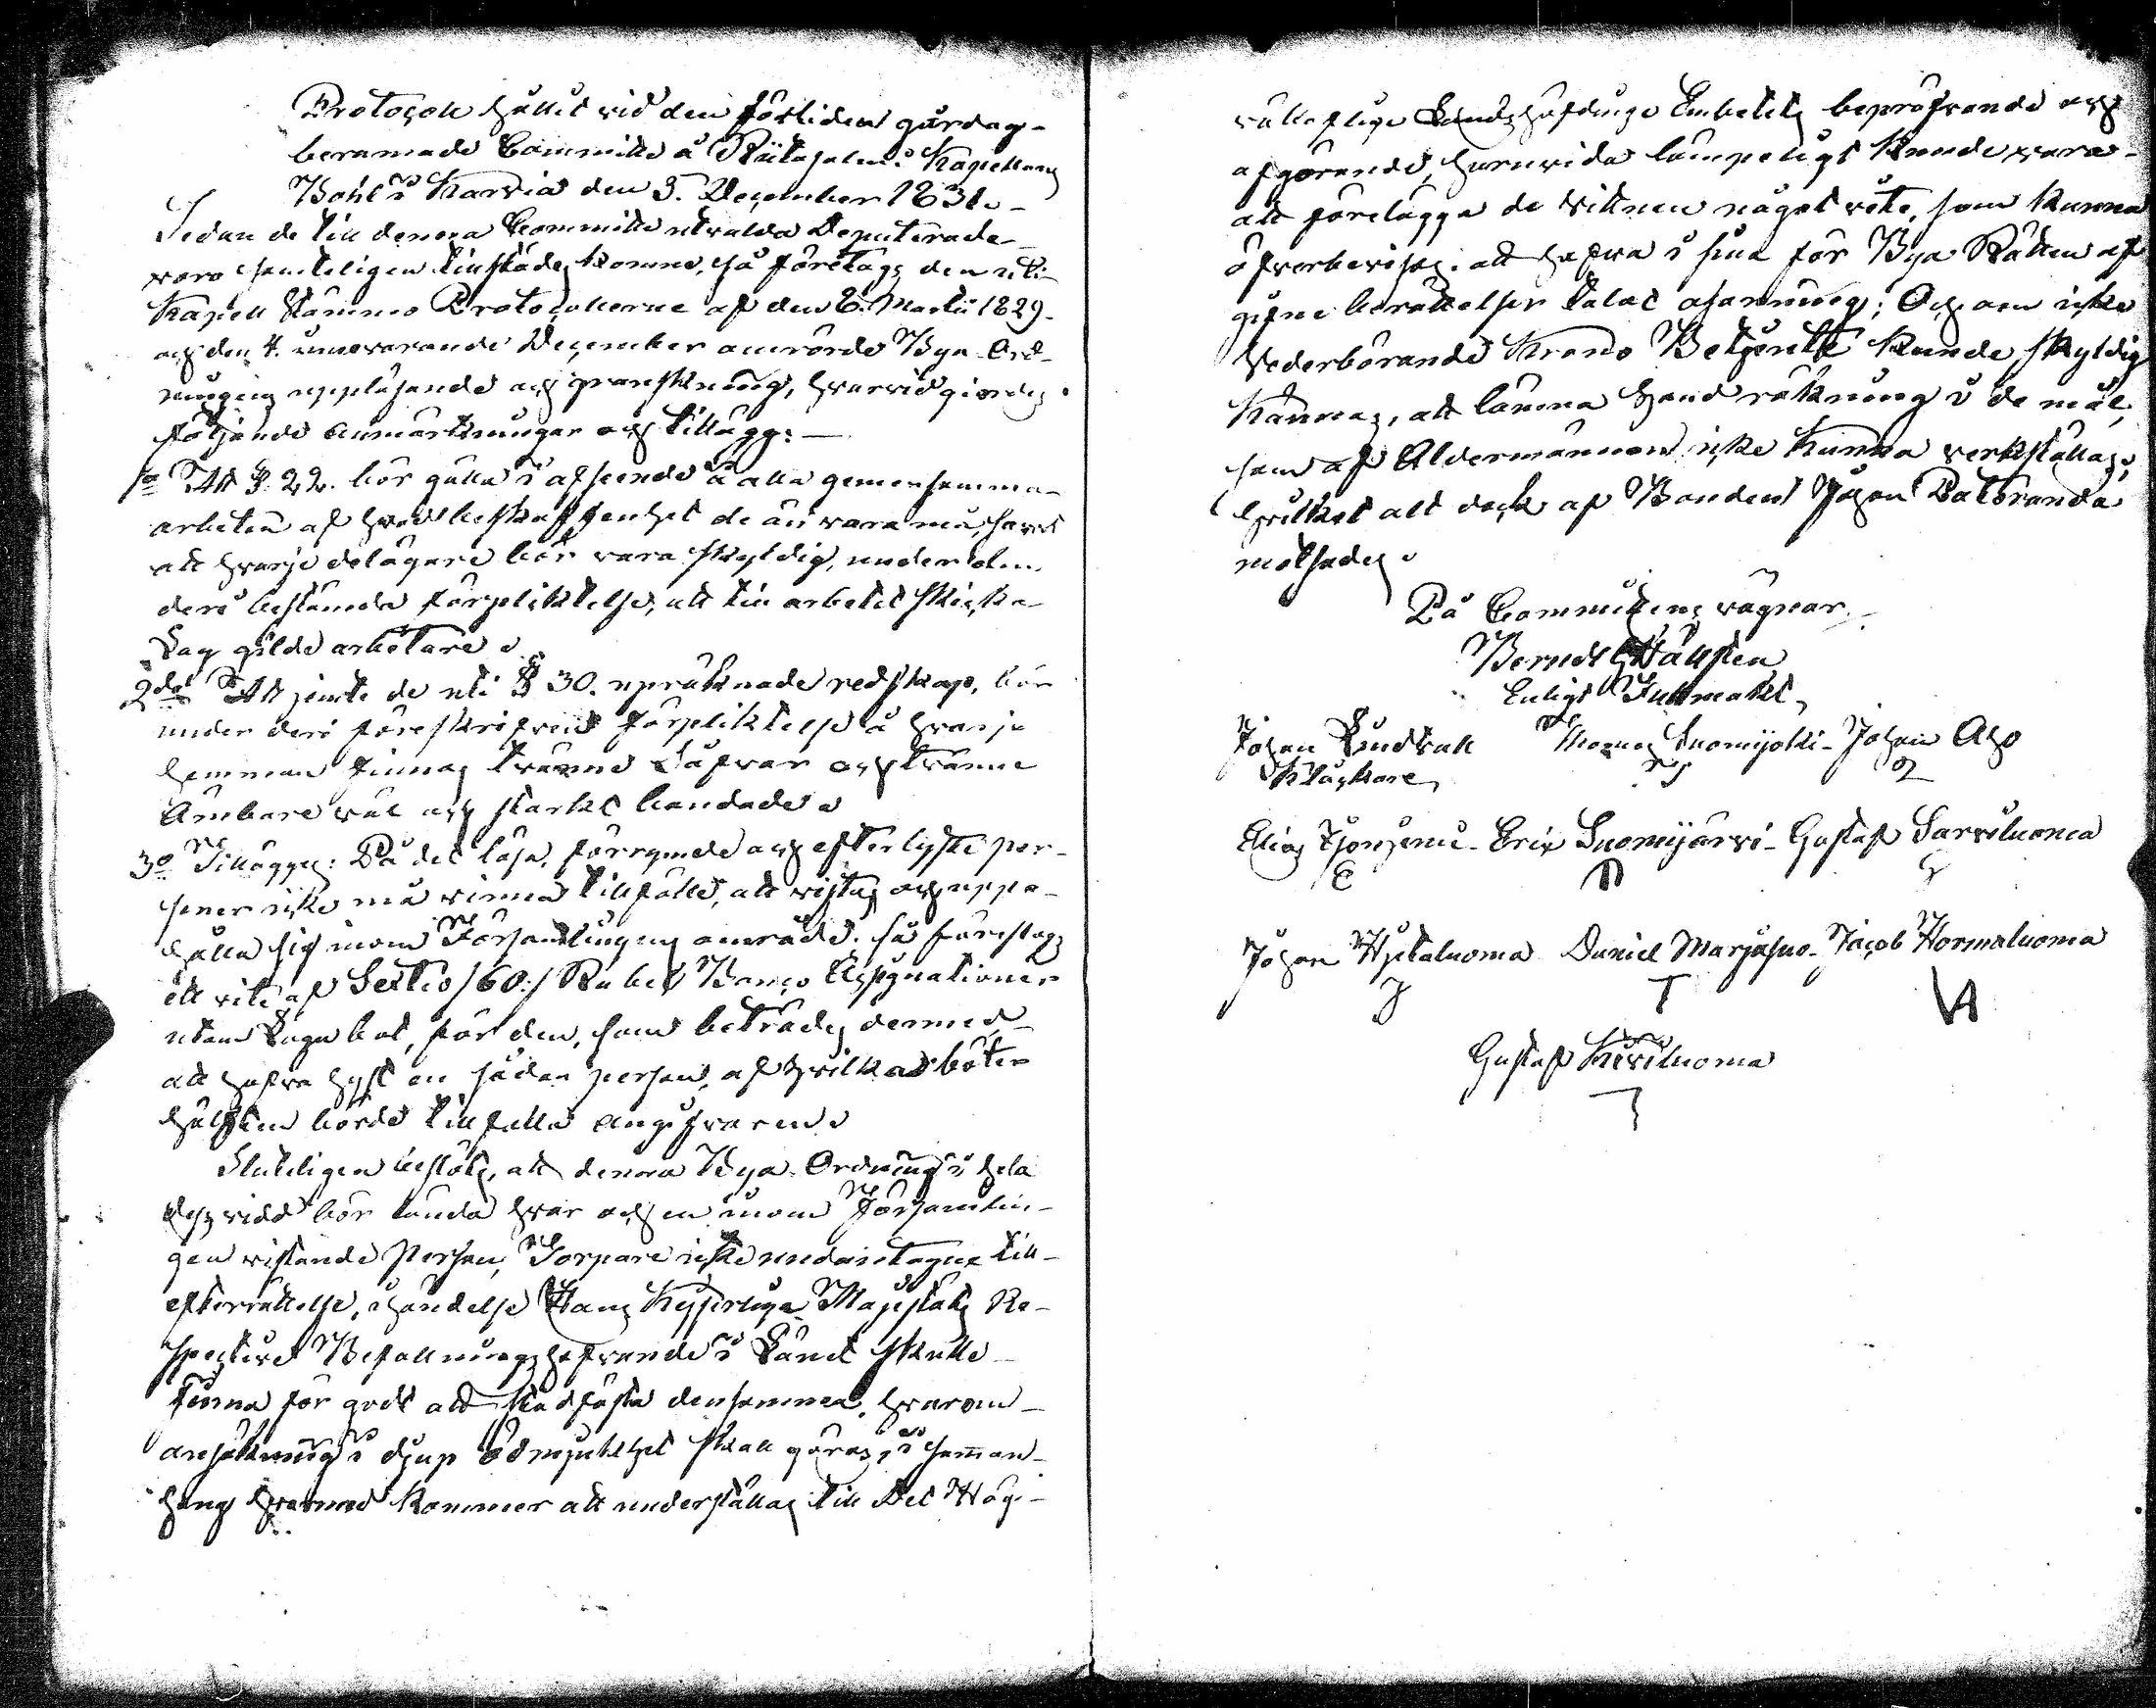 Protocoll hållit vid den förliden gårdag-
beramade Committé å Rätasalmi Kapellans
Bohl i Karvia den 5. December 1831. -
Sedan de till denna Committé utvalda Deputerade
voro samteligen tillstädes komne, så företogs den uti
Kapell Stämmo Protocollerne af den 8. Martii 1829.
och den 4. innevarande December omrörde Bya-Ord-
ningens uppläsande och granskning, hvarvid giordes
följande anmärkningar och tillägg: -
1o Att §. 22. bör gälla i afseende å alla gemensamma
arbeten af hvad beskaffenhet de än vara må, samt
att hvarje delägare bör vara skyldig, under den
deri bestämda förpliktelse, att till arbetet skicka
Lag gilde arbetare.
2do Att jemte de uti § 30. upräknade redskap, bör
under deri föreskrifven förpliktelse å hvarje
hemman finnas tvänne Såfvar och tvänne
Ämbare väl och starkt bandade.
3o Tillägges: På det löse, förrymde och efterlyste per-
soner icke må vinna tillfälle, att vistas och uppe-
hålla sig inom Församlingens område, så föreslogs
ett vite af Sextio /60:/ Rubel Banco Assignationer
utom Laga bot, för den, som beträdes dermed
att hafva hyst en sådan person, af hvilka böter
hälften borde tillfalla angifvaren.
Sluteligen beslöts, att denna Bya Ordning i hela
dess vidd bör lända hvar och en inom Församlin-
gen vistande Person, Torpare icke undantagne till
efterrättelse, ihändelse Hans Kejserliga Majestäts Re-
spective Befallningshafvande i Länet skulle
finna för godt att stadfästa densamma, hvarom
ansökning i djup ödmjukhet skall göras, i samman-
hang hvarmed kommer att underställas till Det Hög-
vällofliga Landshöfdinge Embetets bepröfvande och
afgörande, huruvida lämpeligt kunde vara
att förelägga de vittnen något vite, som kunna
öfverbevisas att hafva i sina för Bya Rätten af-
gifne berättelser talat osanning; Och om icke
Vederbörande Krono Betjente kunde skyldig
kännas, att lämna handräkning i de mål,
som af Åldermannen icke kunna verkställas;
hvilket allt dock af Bonden Johan Ratbranda
motsades.
På Committéns vägnar
Berndt Hällsten
Enligt Fullmakt,
Johan Lindvall Thomas Suomijoki - Johan Aho
Kläckare
Elias - Eric Suomijärvi - Gustaf Sarviluoma
E
Johan Hjetaluoma Daniel Marjasuo - Jacob Hormaluoma
J T
Gustaf Kiviluoma